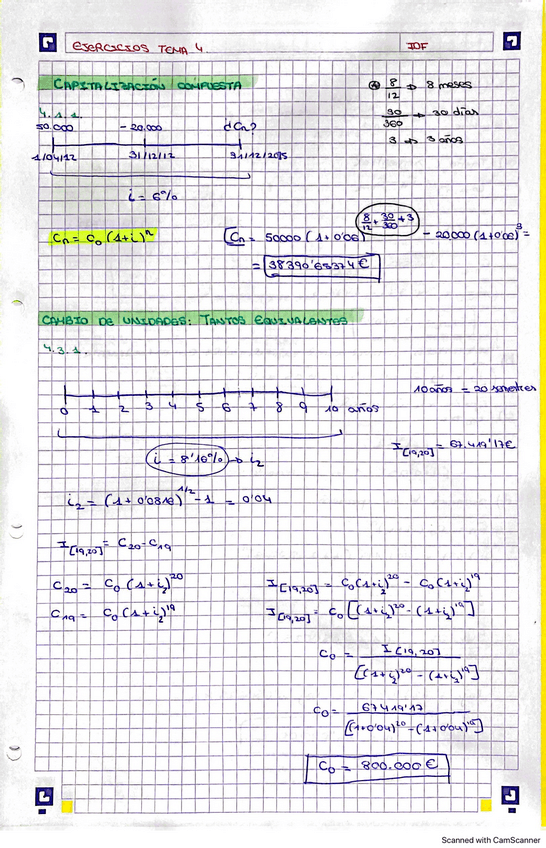 EJERCICIOS TEMA 4 IOF
CAPITALIZACIÓN COMPUESTA
8/12 → 8 meses
30/360 → 30 días
3 → 3 años
4.1.1.
50.000 -20.000 ¿Cn?
1/04/12 31/12/12 31/12/2015
i = 6%
Cn = C0 (1+i)^n
Cn = 50000 (1+0'06)^(8/12 + 30/360 + 3) - 20.000 (1+0'06)^3 =
= 38390'65374 €
CAMBIO DE UNIDADES: TANTOS EQUIVALENTES
4.3.1.
0 1 2 3 4 5 6 7 8 9 10 años
10 años = 20 semestres
i = 8'16% → i2
I[19,20] = 67.419'17€
i2 = (1+0'0816)^1/2 - 1 = 0'04
I[19,20] = C20 - C19
C20 = C0 (1+i2)^20
C19 = C0 (1+i2)^19
I[19,20] = C0 (1+i2)^20 - C0 (1+i2)^19
I[19,20] = C0 [(1+i2)^20 - (1+i2)^19]
C0 = I[19,20] / [(1+i2)^20 - (1+i2)^19]
C0 = 67419'17 / [(1+0'04)^20 - (1+0'04)^19]
C0 = 800.000 €
Scanned with CamScanner